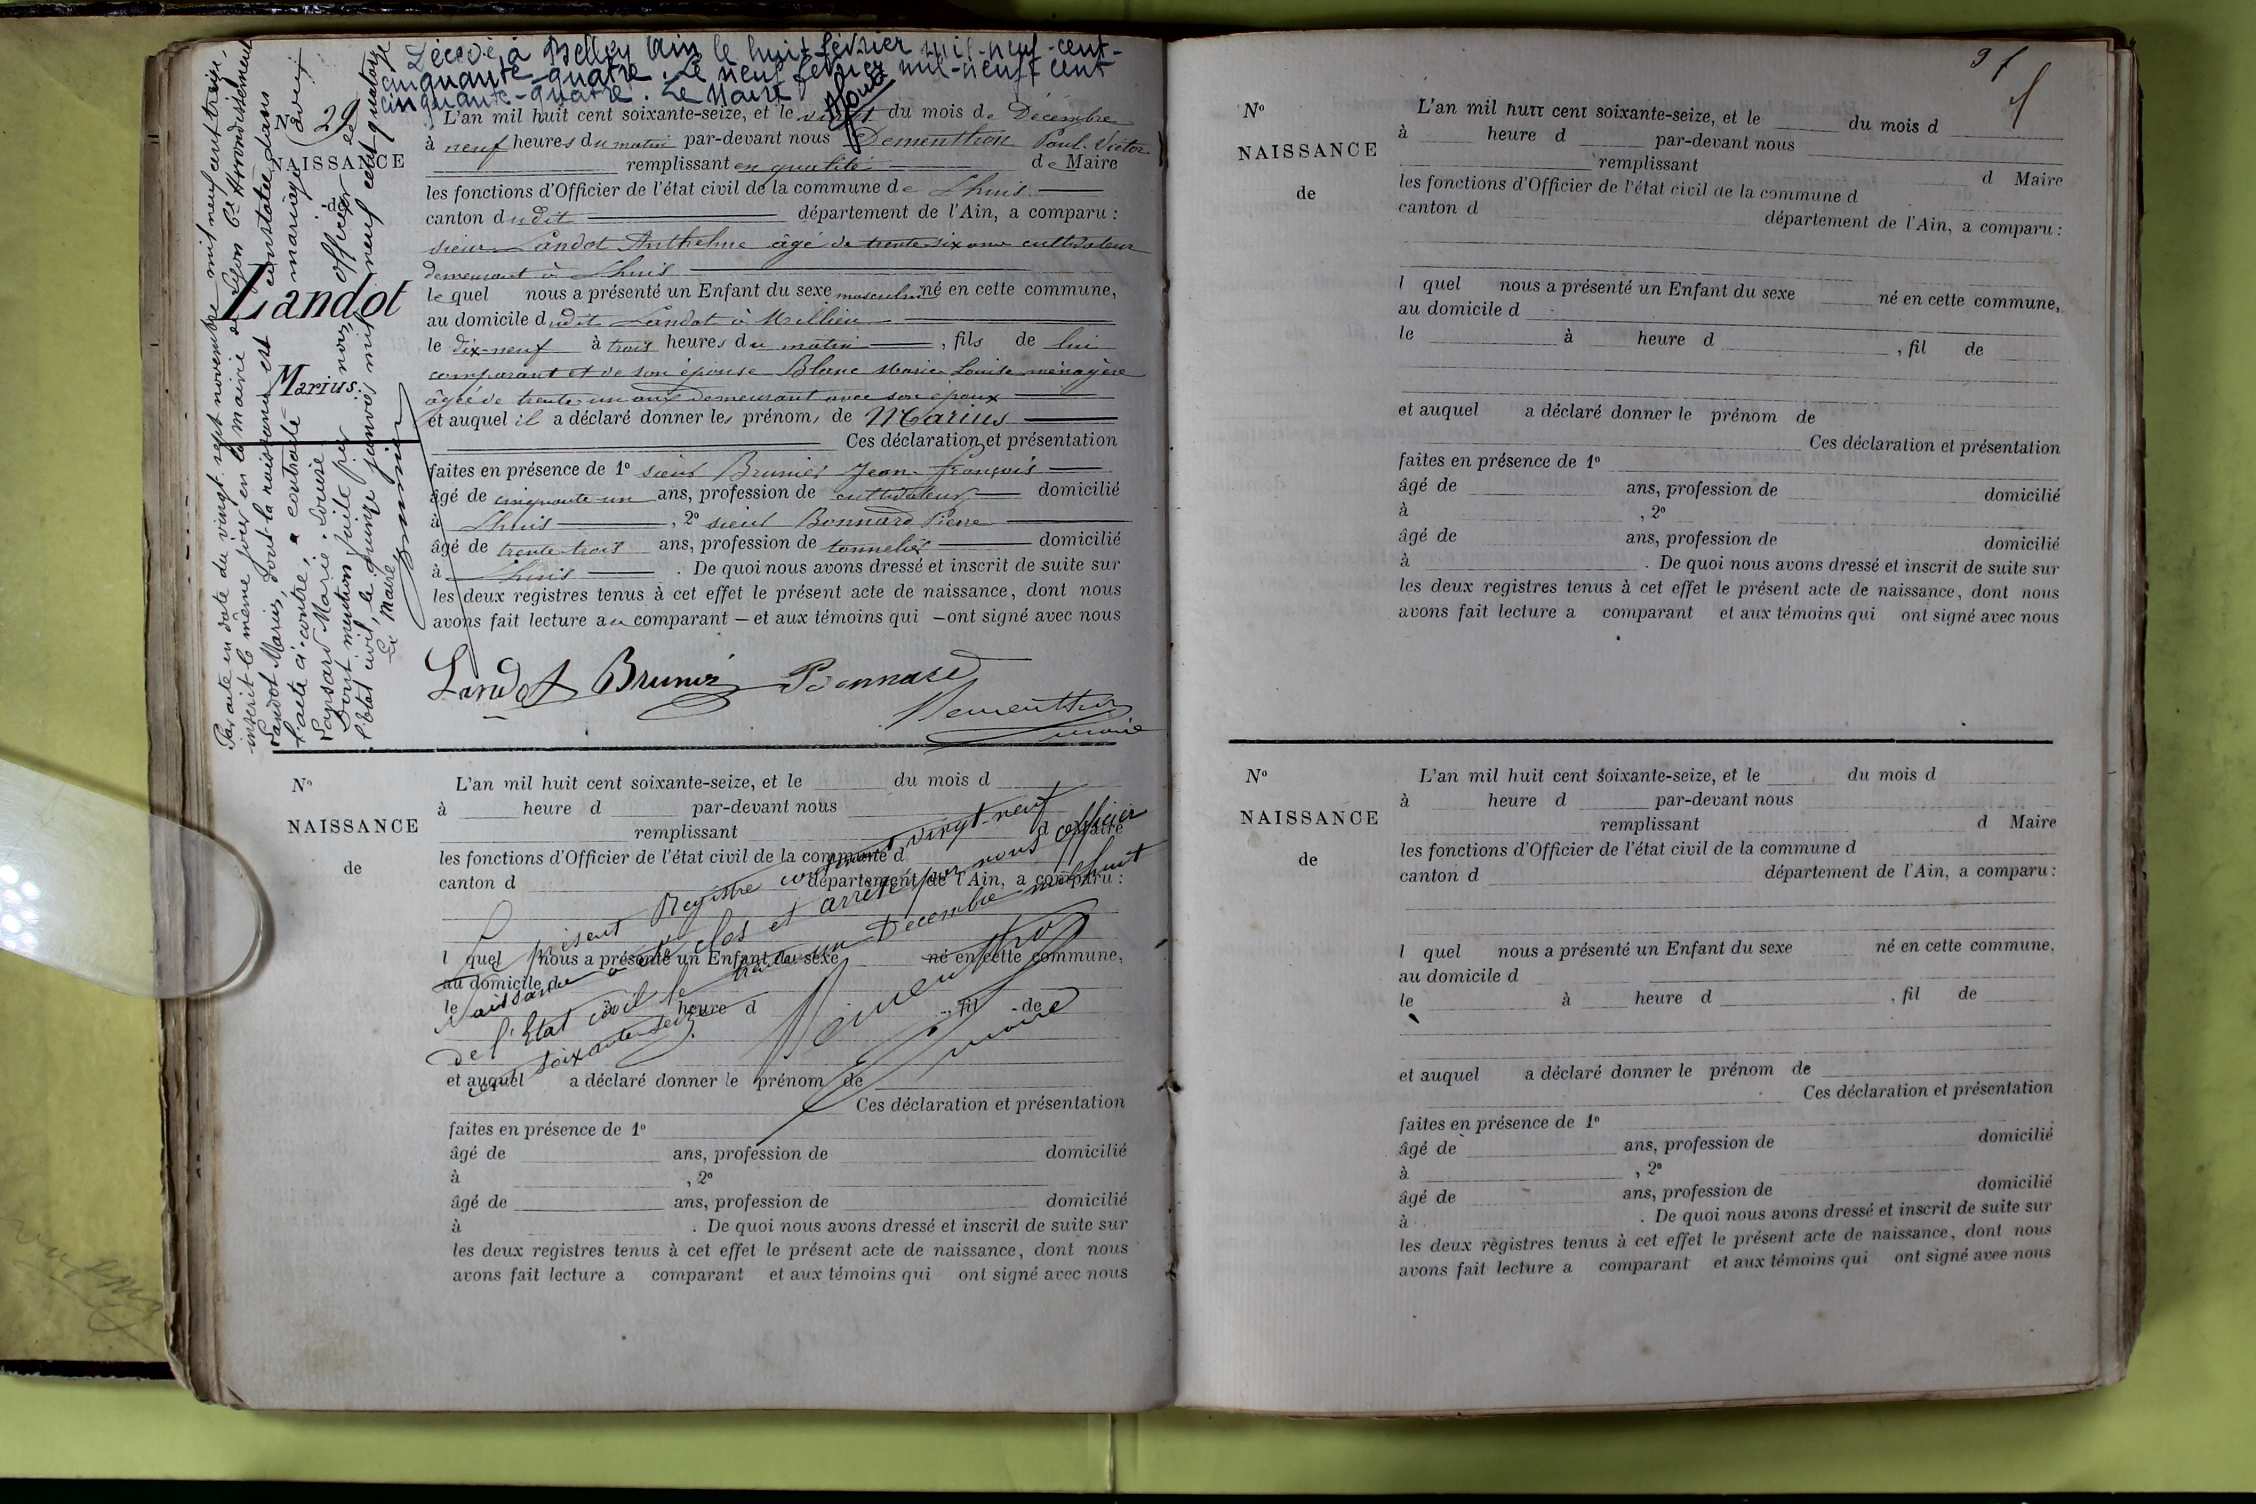 Décédé à Belley Ain le huit février mil-neuf-cent-
cinquante-quatre. Le neuf février mil-neuf cent
cinquante-quatre. Le Maire
N° 29
NAISSANCE
de
Landot
Marius.
Par acte en date du vingt sept novembre mil neuf cent treize,
inscrit le même jour en la mairie de Lyon 6e Arrondissement
Landot Marius, dont la naissance est constatée dans
l'acte ci-contre, a contracté mariage avec
Lapsard Marie Louise
Dont mention faite par nous officier de
l'Etat civil, le quinze janvier mil neuf cent quatorze
Le Maire
Brunier
L'an mil huit cent soixante-seize, et le vingt du mois de Décembre
à neuf heures du matin par-devant nous Dementhon Paul-Victor
remplissant en qualité de Maire
les fonctions d'Officier de l'état civil de la commune de Lhuis
canton dudit département de l'Ain, a comparu :
sieur Landot Anthelme âgé de trente six ans cultivateur
demeurant à Lhuis
le quel nous a présenté un Enfant du sexe masculin né en cette commune,
au domicile dudit Landot à Millieu
le dix-neuf à trois heures du matin, fils de lui
comparant et de son épouse Blanc Marie Louise ménagère
âgée de trente un ans demeurant avec son époux
et auquel il a déclaré donner les prénoms de Marius
Ces déclaration et présentation
faites en présence de 1° sieur Brunier Jean-françois
âgé de cinquante un ans, profession de cultivateur domicilié
à Lhuis, 2° sieur Bonnard Pierre
âgé de trente-trois ans, profession de tonnelier domicilié
à Lhuis. De quoi nous avons dressé et inscrit de suite sur
les deux registres tenus à cet effet le présent acte de naissance, dont nous
avons fait lecture au comparant — et aux témoins qui — ont signé avec nous
Landot Brunier Bonnard
Dementhon
maire
N°
NAISSANCE
de
L'an mil huit cent soixante-seize, et le du mois d
à heure d par-devant nous
remplissant d Maire
les fonctions d'Officier de l'état civil de la commune d
canton d département de l'Ain, a comparu :
l quel nous a présenté un Enfant du sexe né en cette commune,
au domicile d
le à heure d , fil de
et auquel a déclaré donner le prénom de
Ces déclaration et présentation
faites en présence de 1°
âgé de ans, profession de domicilié
à , 2°
âgé de ans, profession de domicilié
à . De quoi nous avons dressé et inscrit de suite sur
les deux registres tenus à cet effet le présent acte de naissance, dont nous
avons fait lecture a comparant et aux témoins qui ont signé avec nous
Le présent Registre contenant vingt-neuf
Naissances a été clos et arrêté par nous officier
de l'Etat civil le trente un Décembre mil huit
cent soixante seize.
Dementhon
maire
31
N°
NAISSANCE
de
L'an mil huit cent soixante-seize, et le du mois d
à heure d par-devant nous
remplissant d Maire
les fonctions d'Officier de l'état civil de la commune d
canton d département de l'Ain, a comparu :
l quel nous a présenté un Enfant du sexe né en cette commune,
au domicile d
le à heure d , fil de
et auquel a déclaré donner le prénom de
Ces déclaration et présentation
faites en présence de 1°
âgé de ans, profession de domicilié
à , 2°
âgé de ans, profession de domicilié
à . De quoi nous avons dressé et inscrit de suite sur
les deux registres tenus à cet effet le présent acte de naissance, dont nous
avons fait lecture a comparant et aux témoins qui ont signé avec nous
N°
NAISSANCE
de
L'an mil huit cent soixante-seize, et le du mois d
à heure d par-devant nous
remplissant d Maire
les fonctions d'Officier de l'état civil de la commune d
canton d département de l'Ain, a comparu :
l quel nous a présenté un Enfant du sexe né en cette commune,
au domicile d
le à heure d , fil de
et auquel a déclaré donner le prénom de
Ces déclaration et présentation
faites en présence de 1°
âgé de ans, profession de domicilié
à , 2°
âgé de ans, profession de domicilié
à . De quoi nous avons dressé et inscrit de suite sur
les deux registres tenus à cet effet le présent acte de naissance, dont nous
avons fait lecture a comparant et aux témoins qui ont signé avec nous